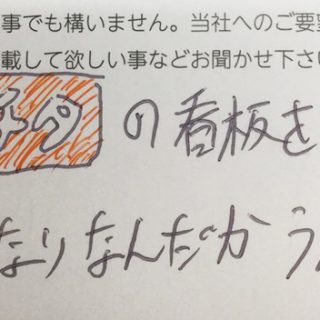 事でも構いません。当社へのご要望
載して欲しい事などお聞かせ下さい
の看板を
なりなんだか う